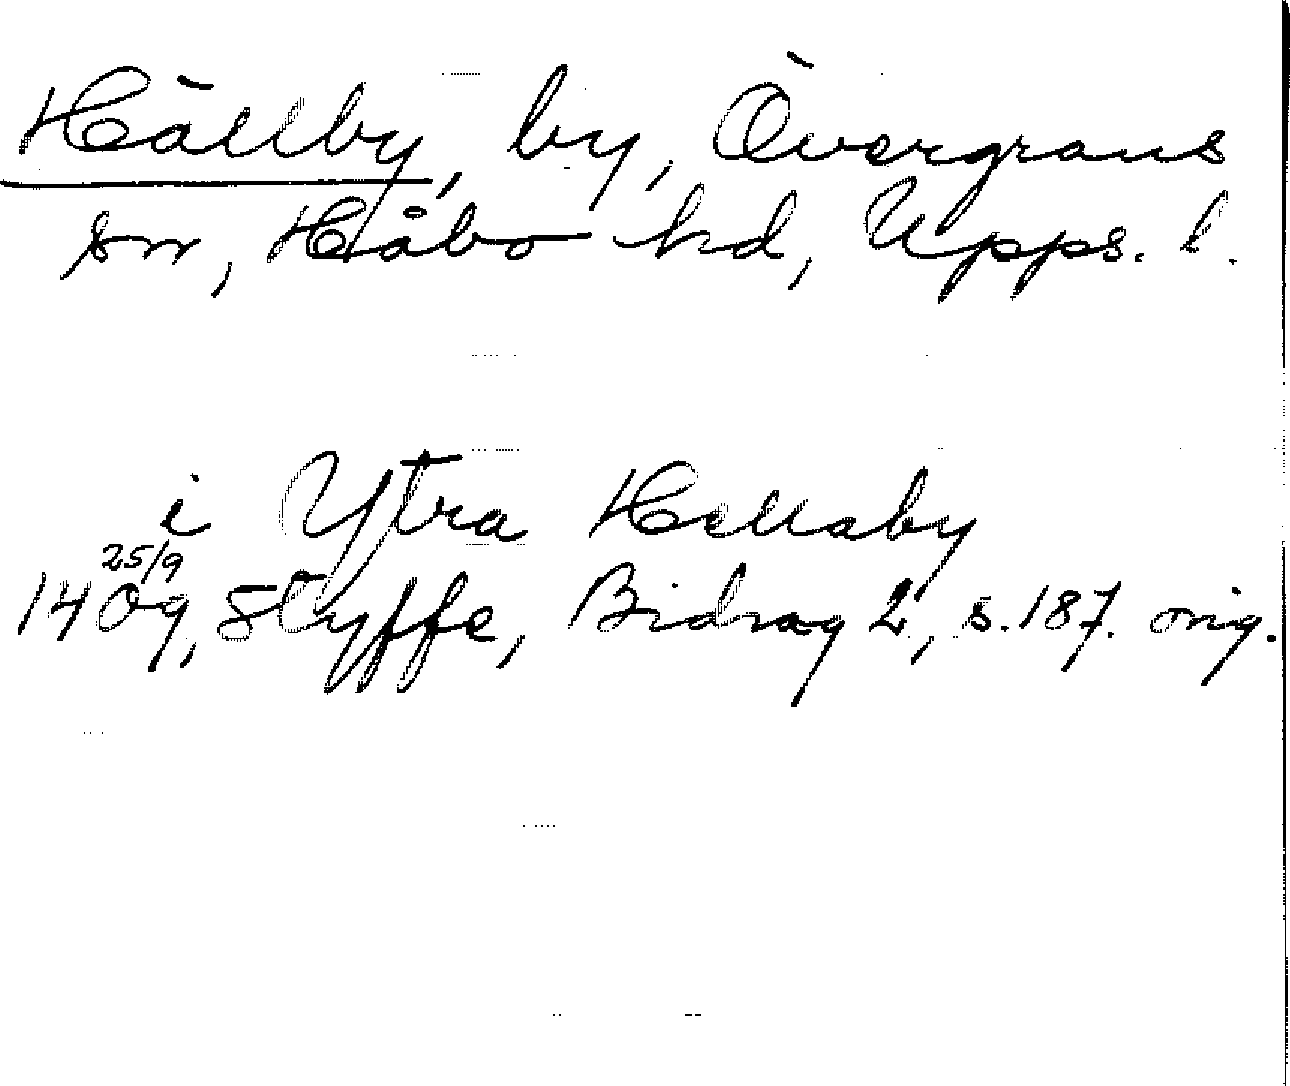 Hällby, by, Övergrans
sn, Håbo hd, Upps. l.
i Ytra Hellaby
25/9
1409, Styffe, Bidrag 2, s. 187. orig.